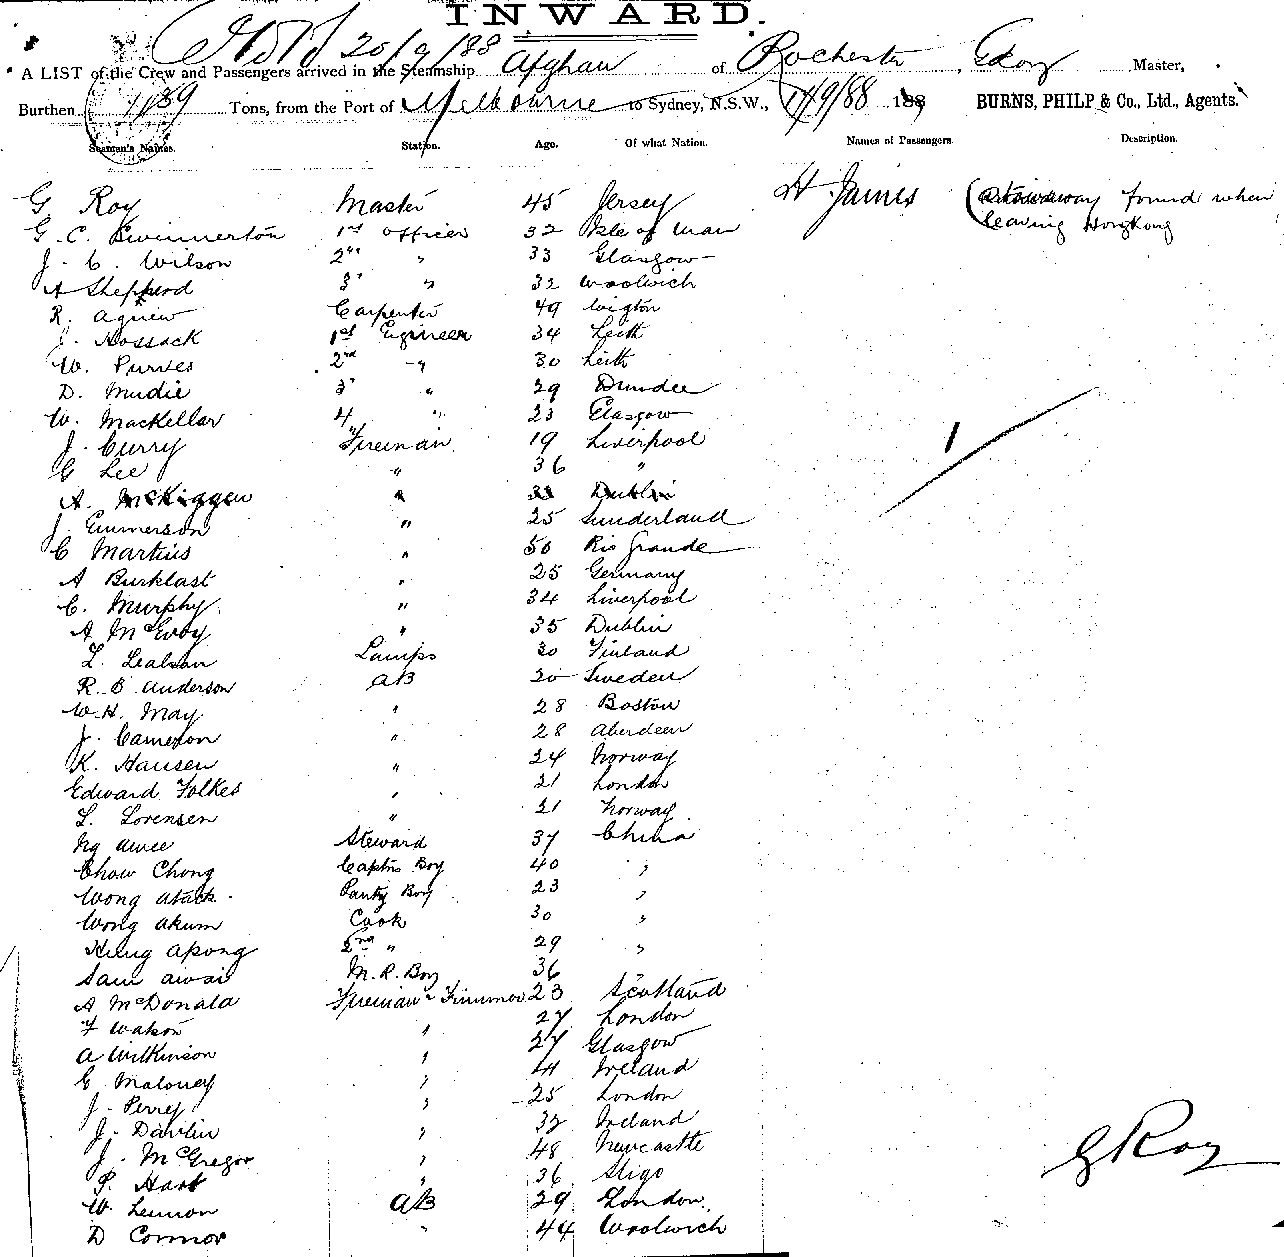 INWARD.
20/9/88
A LIST of the Crew and Passengers arrived in the Steamship Afghan of Rochester, G Roy Master,
Burthen 1439 Tons, from the Port of Melbourne to Sydney, N.S.W., 14/9/88 188 BURNS, PHILP & Co., Ltd., Agents.
Seaman's Names. Station. Age. Of what Nation. Names of Passengers. Description.
G Roy Master 45 Jersey H. James (a stowaway found when
leaving Hongkong
G. C. Swinnerton 1st Officer 32 Isle of Man
J. C. Wilson 2nd " 33 Glasgow
A Shepperd 3 " 32 Woolwich
R. Agnew Carpenter 49 Wigton
J. Hossack 1st Engineer 34 Leith
W. Purves 2nd " 30 Leith
D. Mudie 3 " 29 Dundee
W. MacKellar 4 " 23 Glasgow
J. Curry Fireman 19 Liverpool
G Lee " 36 "
A. McKiggen " 33 Dublin
J. Gunnerson " 25 Sunderland
C Martins " 50 Rio Grande
A Burklast " 25 Germany
C. Murphy " 34 Liverpool
A McEvoy " 35 Dublin
L. Lamps 30 Finland
R. B. Anderson AB 20 Sweden
W. H. May " 28 Boston
J. Cameron " 28 Aberdeen
K. Hansen " 24 Norway
Edward Folkes " 21 London
L. Lorensen " 21 Norway
Ng Awee Steward 37 China
Chow Chong Captns Boy 40 "
Wong Atack Pantry Boy 23 "
Wong Akum Cook 30 "
Hung Apong 2nd " 29 "
Sam Awai M. R. Boy 36
A McDonald Fireman & Trimmer 23 Scotland
F Watson " 27 London
A Wilkinson " 27 Glasgow
C Maloney " 41 Ireland
J. Perrey " 25 London
J. Davlin " 32 Ireland
J. McGregor " 48 Newcastle
P. Hart " 36 Sligo
W. Lennon AB 29 London
D Connor " 44 Woolwich
1
G Roy